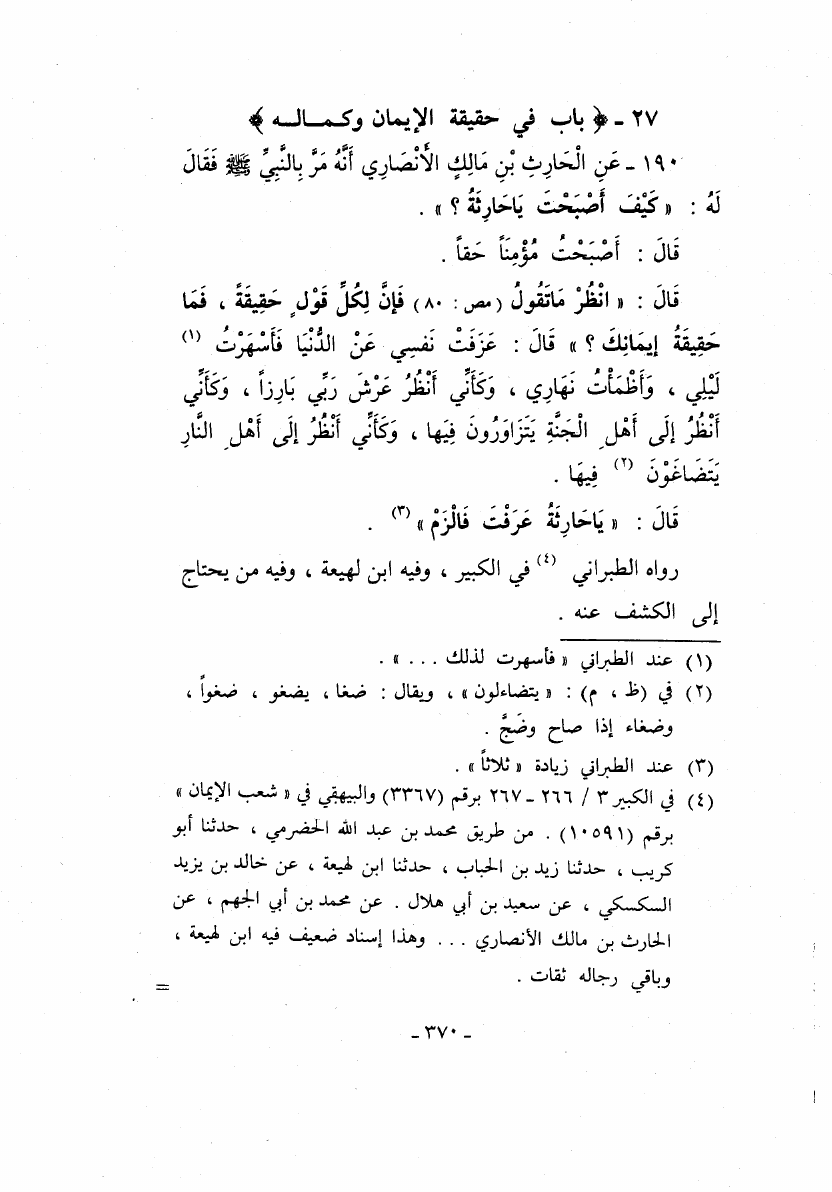 ٢٧ - ﴿ باب في حقيقة الإيمان وكـمـــالـــه ﴾
١٩٠ - عَنِ الْحَارِثِ بْنِ مَالِكٍ الأَنْصَارِي أَنَّهُ مَرَّ بِالنَّبِيِّ ﷺ فَقَالَ
لَهُ : « كَيْفَ أَصْبَحْتَ يَاحَارِثَةُ ؟ » .
قَالَ : أَصْبَحْتُ مُؤْمِنَاً حَقاً .
قَالَ : « انْظُرْ مَاتَقُولُ (مص : ٨٠) فَإِنَّ لِكُلِّ قَوْلٍ حَقِيقَةً ، فَمَا
حَقِيقَةُ إِيمَانِكَ ؟ » قَالَ : عَزَفَتْ نَفسِي عَنْ الدُّنْيَا فَأَسْهَرْتُ (١)
لَيْلِي ، وَأَظْمَأْتُ نَهَارِي ، وَكَأَنِّي أَنْظُرُ عَرْشَ رَبِّي بَارِزاً ، وَكَأَنِّي
أَنْظُرُ إِلَى أَهْلِ الْجَنَّةِ يَتَزَاوَرُونَ فِيهَا ، وَكَأَنِّي أَنْظُرُ إِلَى أَهْلِ النَّارِ
يَتَضَاغَوْنَ (٢) فِيهَا .
قَالَ : « يَاحَارِثَةُ عَرَفْتَ فَالْزَمْ » (٣) .
رواه الطبراني (٤) في الكبير ، وفيه ابن لهيعة ، وفيه من يحتاج
إلى الكشف عنه .
(١) عند الطبراني « فأسهرت لذلك ... » .
(٢) في (ظ ، م) : « يتضاءلون » ، ويقال : ضغا ، يضغو ، ضغواً ،
وضغاء إذا صاح وضَجَّ .
(٣) عند الطبراني زيادة « ثلاثاً » .
(٤) في الكبير ٣ / ٢٦٦ - ٢٦٧ برقم (٣٣٦٧) والبيهقي في « شعب الإيمان »
برقم (١٠٥٩١) . من طريق محمد بن عبد الله الحضرمي ، حدثنا أبو
كريب ، حدثنا زيد بن الحباب ، حدثنا ابن لهيعة ، عن خالد بن يزيد
السكسكي ، عن سعيد بن أبي هلال . عن محمد بن أبي الجهم ، عن
الحارث بن مالك الأنصاري ... وهذا إسناد ضعيف فيه ابن لهيعة ،
وباقي رجاله ثقات .
=
- ٣٧٠ -